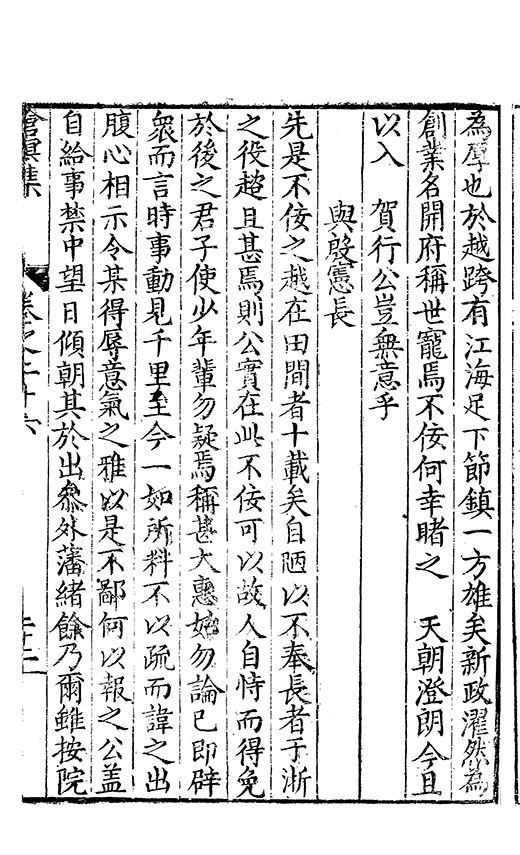 為厚也於越跨有江海足下節鎮一方雄矣新政濯然為
創業名開府稱世寵焉不佞何幸睹之　天朝澄朗今且
以入　賀行公豈無意乎
與殷憲長
先是不佞之越在田間者十載矣自陋以不奉長者于浙
之役趑且甚焉則公實在此不佞可以故人自恃而得免
於後之君子使少年輩勿疑焉稱甚大惠始勿論已即辟
眾而言時事動見千里至今一如所料不以疏而諱之出
腹心相示令某得辱意氣之雅以是不鄙何以報之公盖
自給事禁中望日傾朝其於出叅外藩緒餘乃爾雖按院
滄溟集
卷之二十六
二十二